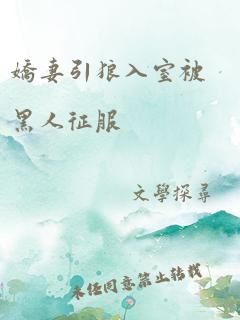 嬌妻引狼入室被
黑人征服
文學探尋
未经同意禁止转载